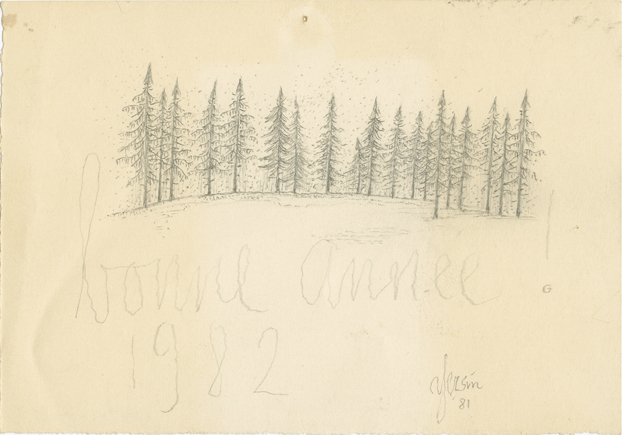 bonne année !
1982
Yersin
81